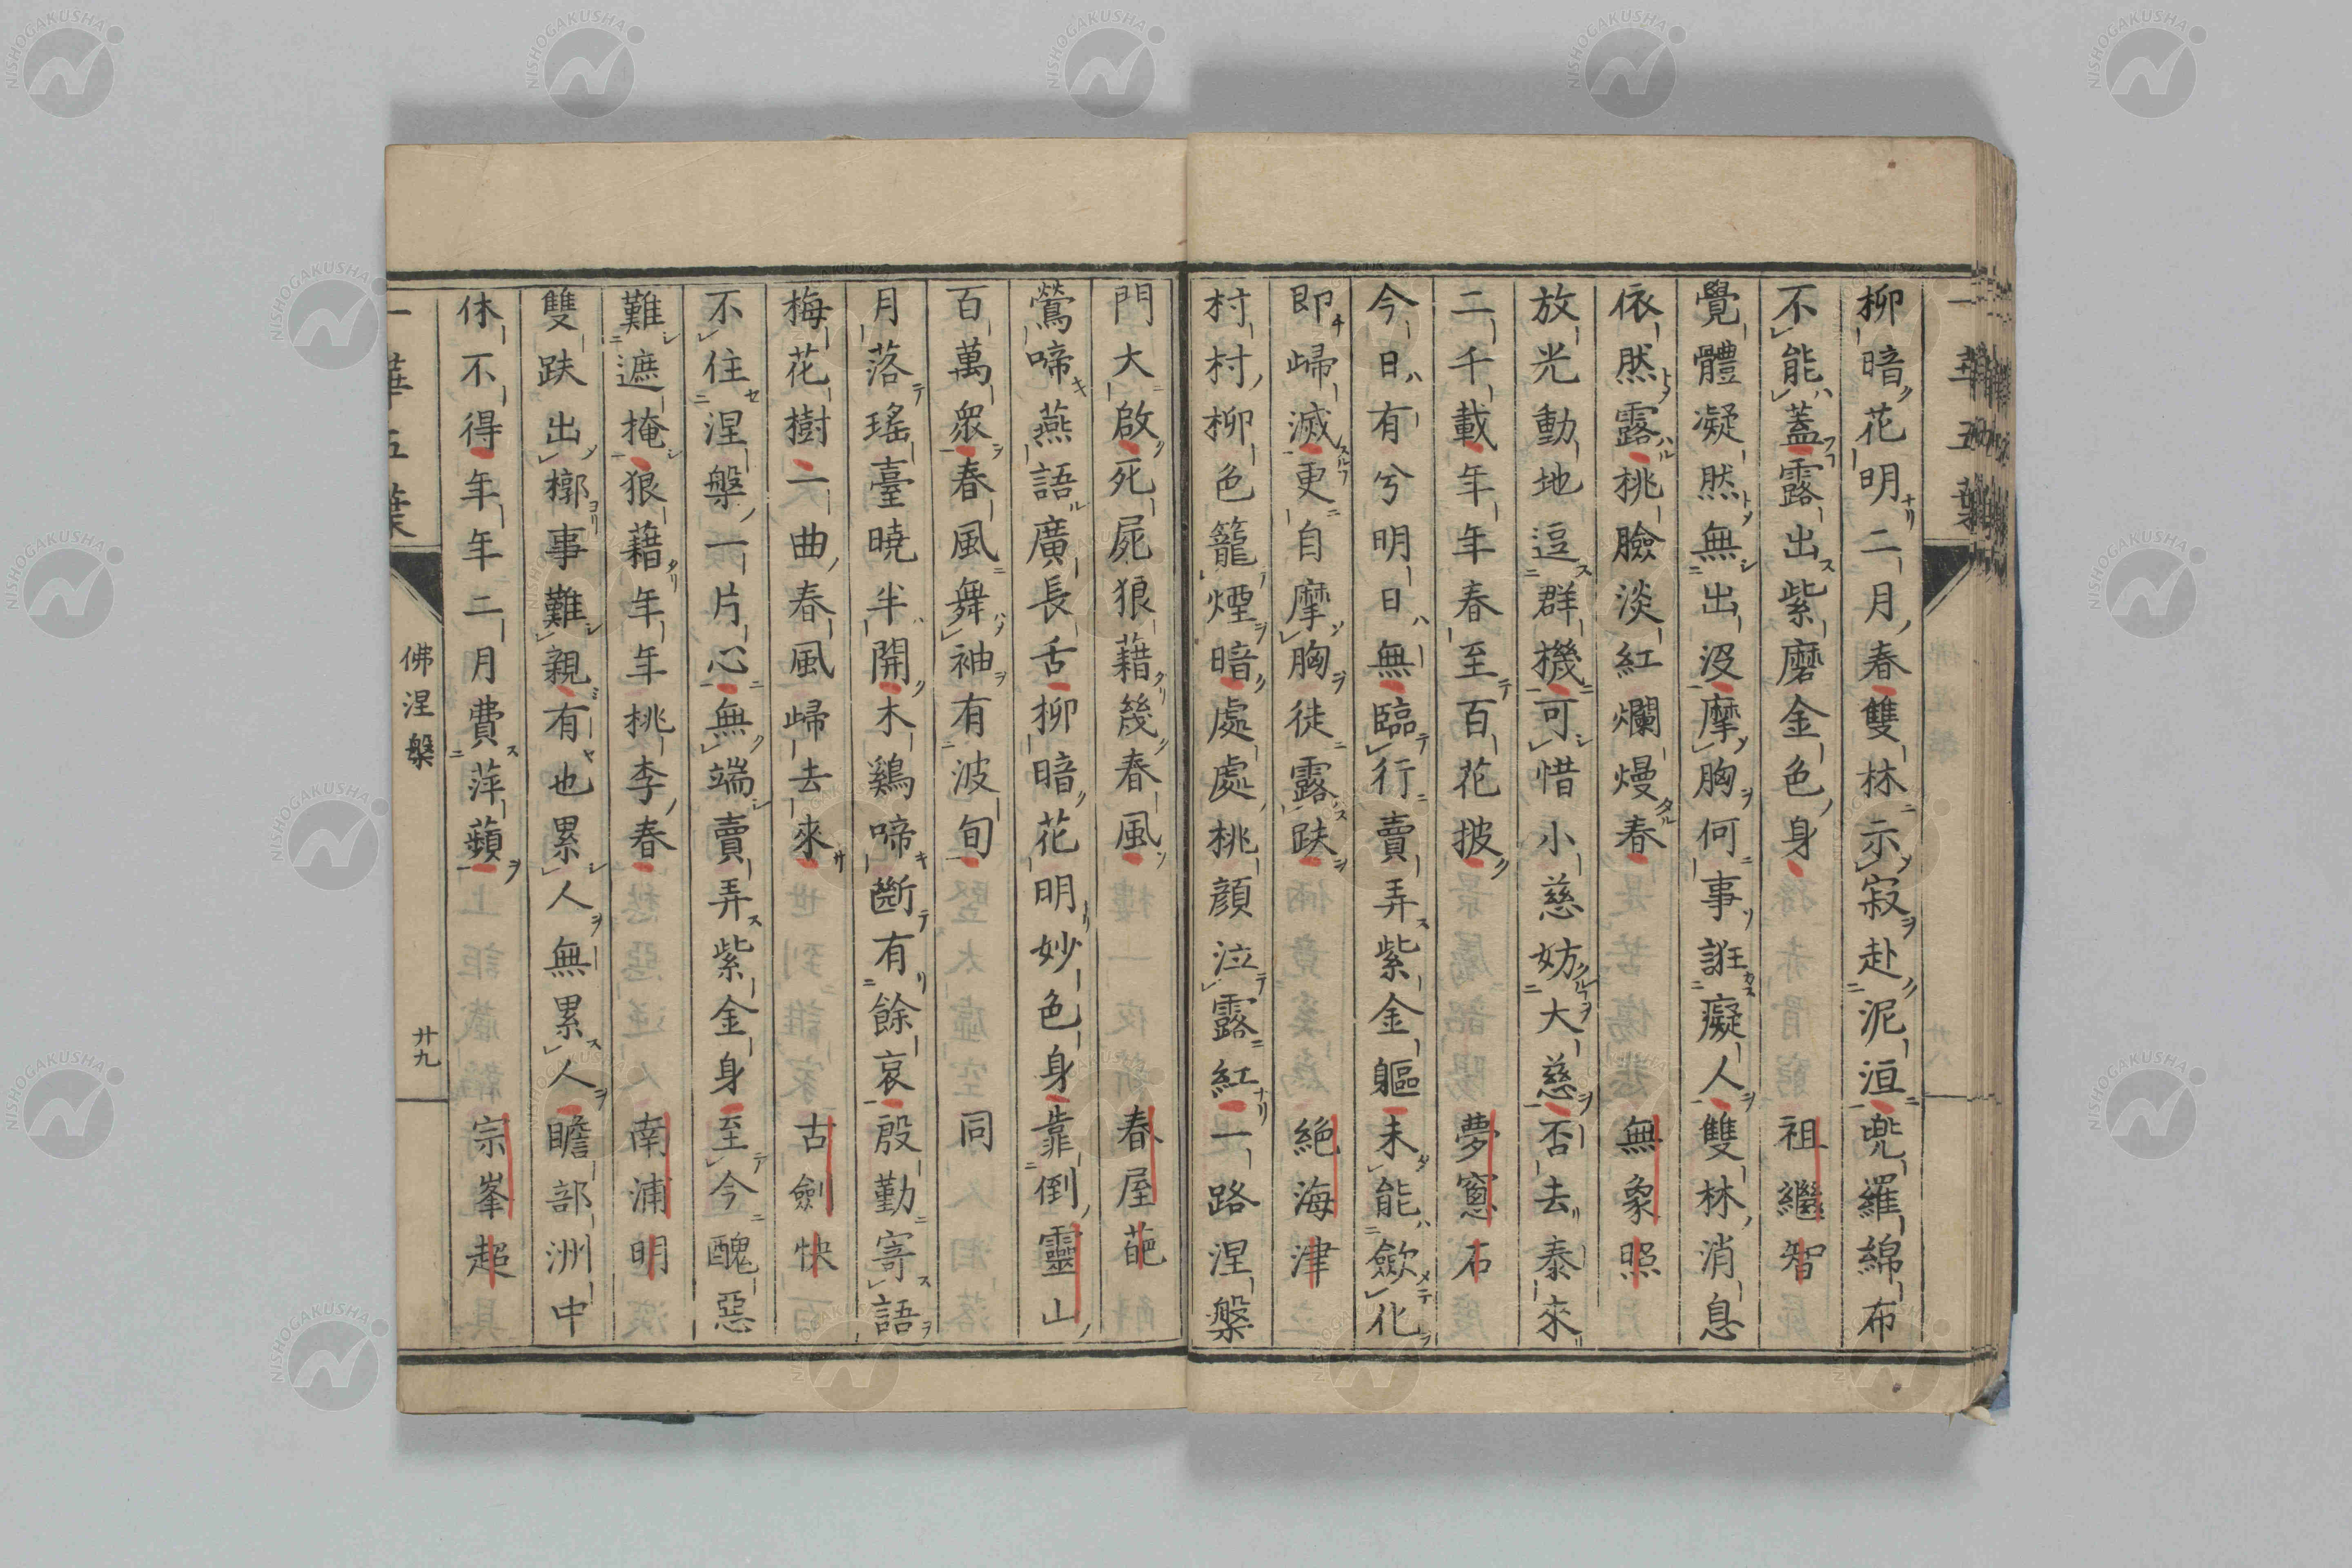 柳暗花明二月春雙林示寂赴泥洹兜羅綿布
不能蓋露出紫磨金色身 祖繼智
覺體凝然無出沒摩胸何事誑癡人雙林消息
依然露桃臉淡紅爛熳春 無象照
放光動地逗群機可惜小慈妨大慈否去泰來
二千載年年春至百花披 夢窓石
今日有兮明日無臨行賣弄紫金軀未能歛化
即歸滅更自摩胸徒露趺 絶海津
村村柳色籠煙暗處處桃顔泣露紅一路涅槃
門大啟死屍狼藉幾春風 春屋葩
鶯啼燕語廣長舌柳暗花明妙色身靠倒靈山
百萬衆春風舞袖有波旬 同
月落瑤臺曉半開木鷄啼斷有餘哀殷勤寄語
梅花樹一曲春風歸去來 古劍快
不住涅槃一片心無端賣弄紫金身至今醜惡
難遮掩狼藉年年桃李春 南浦明
雙趺出槨事難親有也累人無累人瞻部洲中
休不得年年二月費萍蘋 宗峯超
一華五葉
佛涅槃
廿九